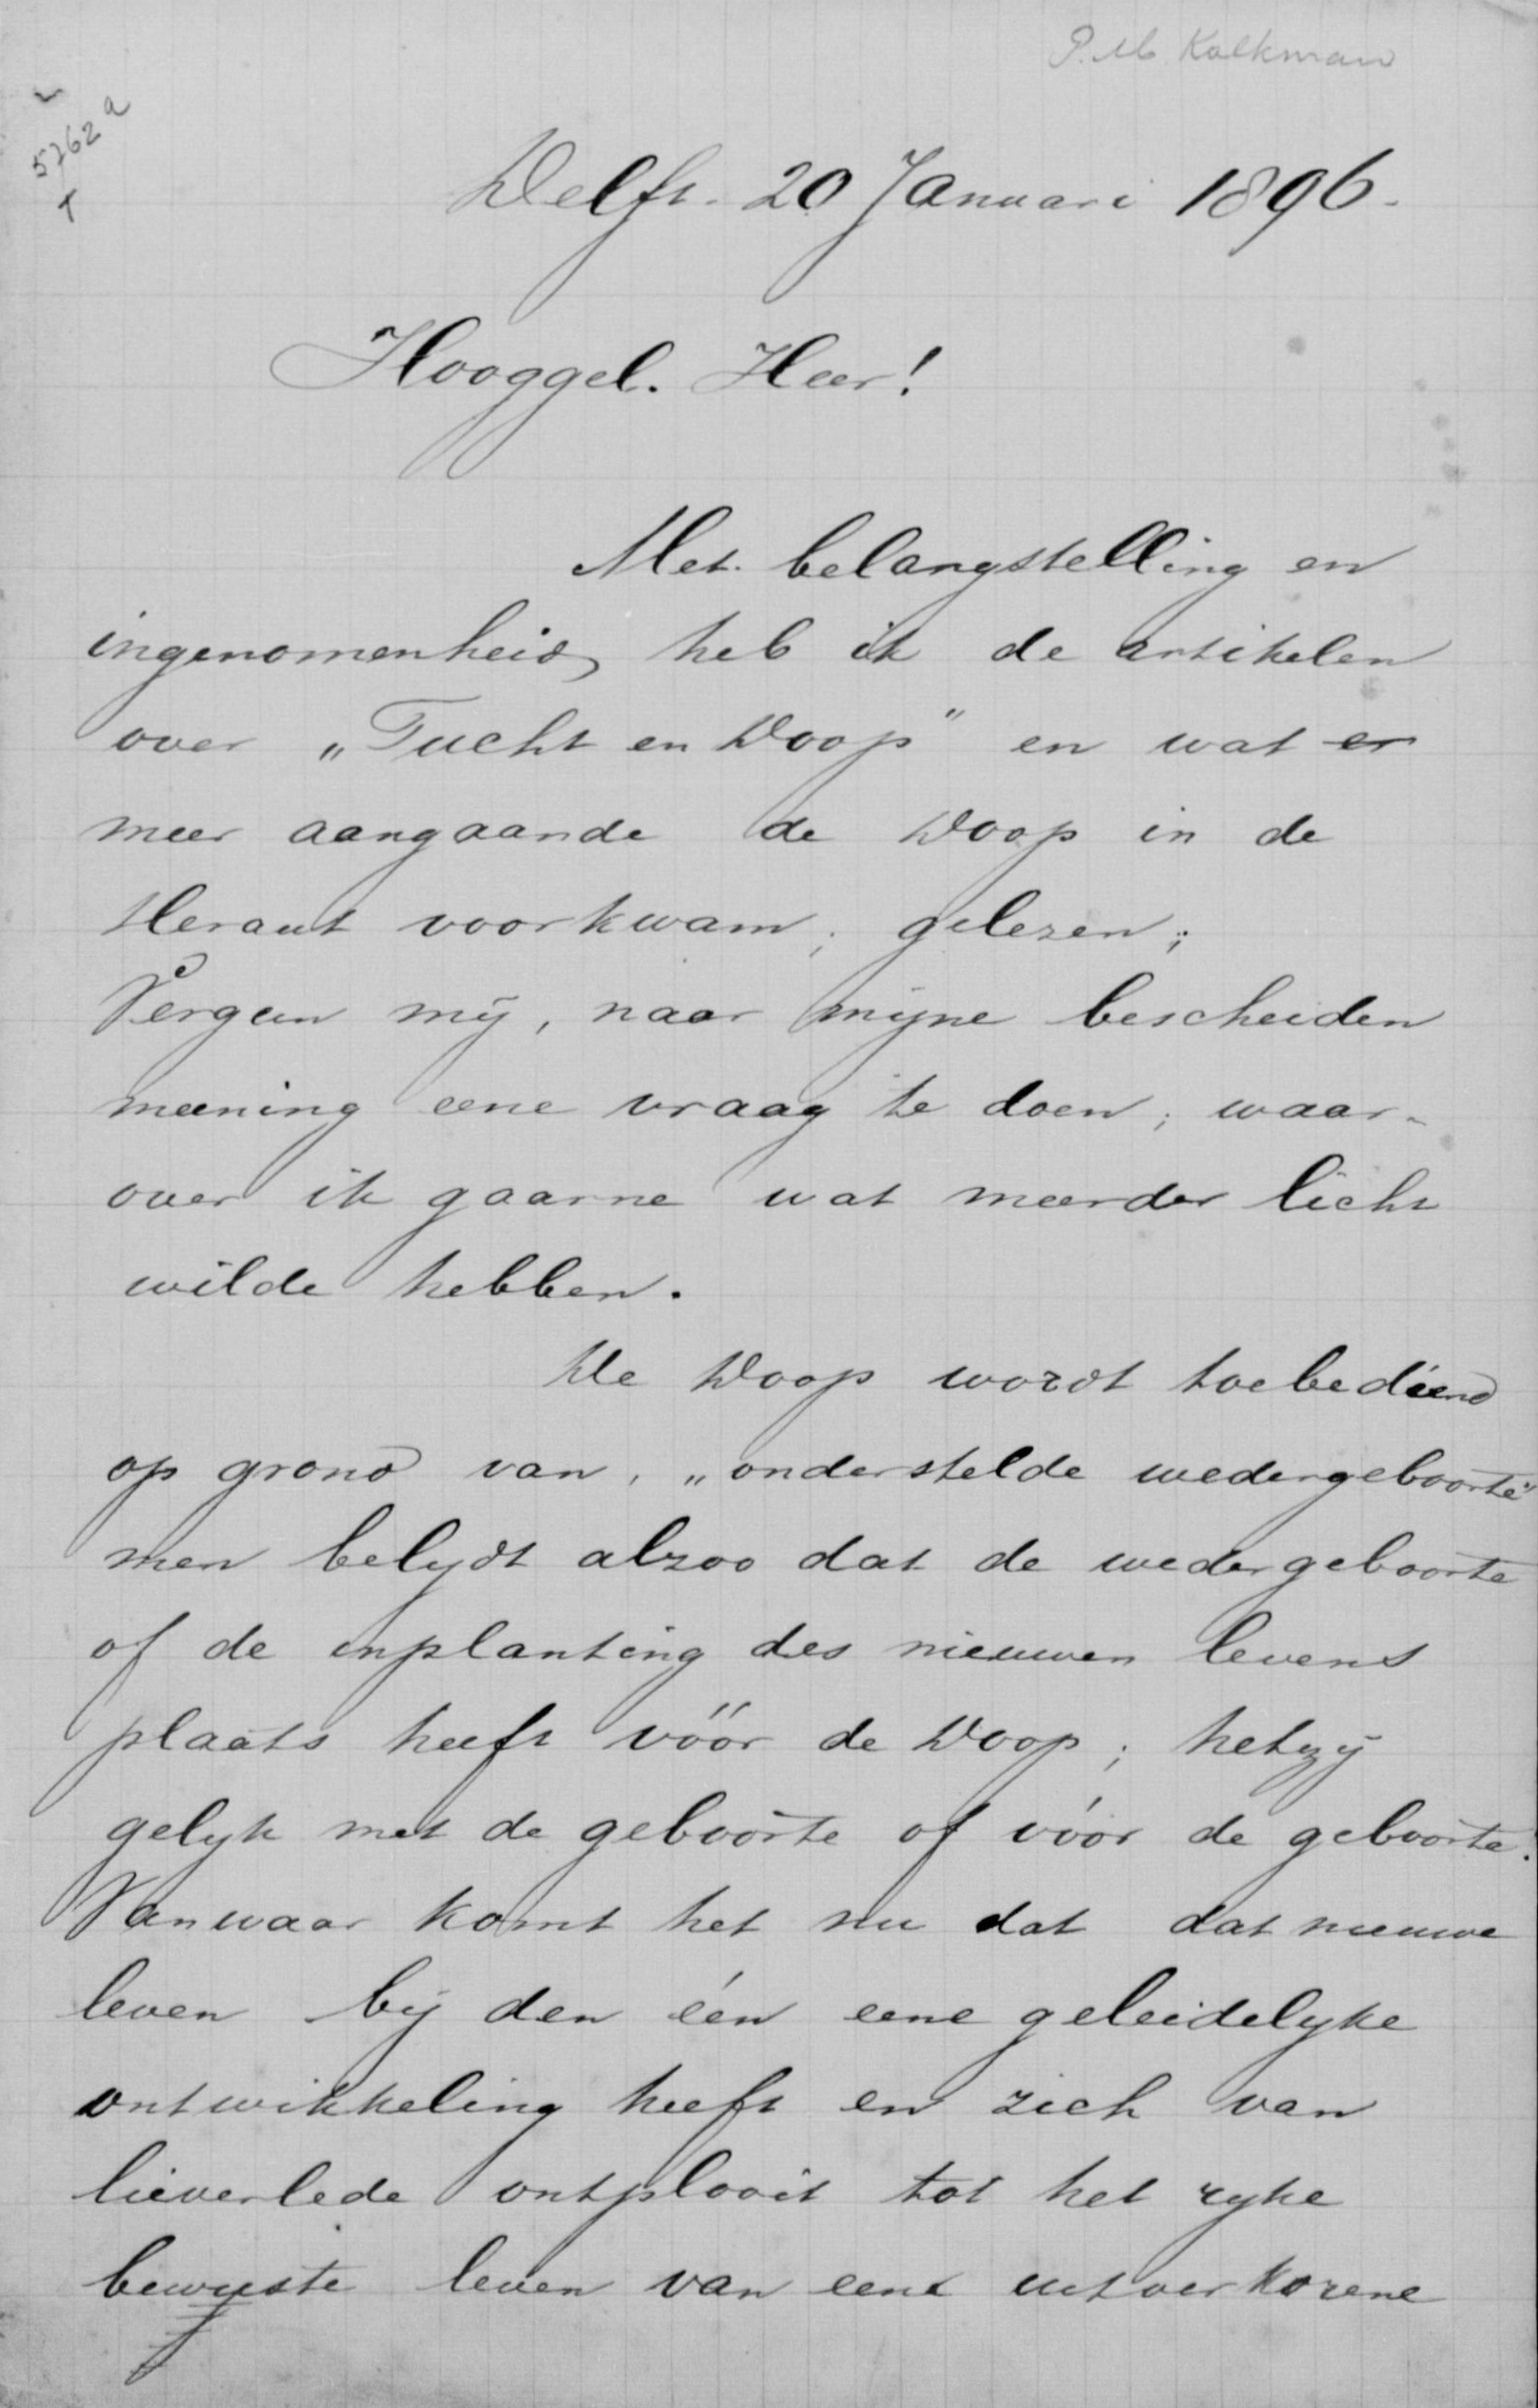 P. M. Kalkman
5762 a
Delft. 20 Januari 1896.
Hooggel. Heer!
Met belangstelling en
ingenomenheid heb ik de artikelen
over „Tucht en Doop” en wat er
meer aangaande de Doop in de
Heraut voorkwam; gelezen;
Vergun mij, naar mijne bescheiden
meening eene vraag te doen; waar-
over ik gaarne wat meerder licht
wilde hebben.
De Doop wordt toebediend
op grond van, „onderstelde wedergeboorte”
men belijdt alzoo dat de wedergeboorte
of de inplanting des nieuwen levens
plaats heeft vóór de Doop; hetzij
gelijk met de geboorte of vóór de geboorte.
Vanwaar komt het nu dat dat nieuwe
leven bij den één eene geleidelijke
ontwikkeling heeft en zich van
lieverlede ontplooit tot het rijke
bewuste leven van eene uitverkorene